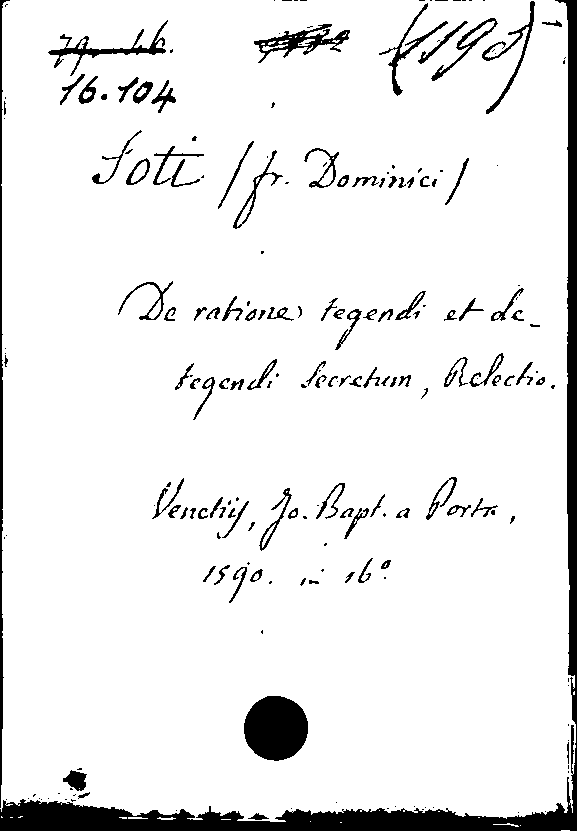 79. 46.
(1195)
16.104
Soti / fr. Dominici /
De ratione tegendi et de-
tegendi Secretum, Relectio.
Venetiis, Jo. Bapt. a Porta,
1590. in 16°